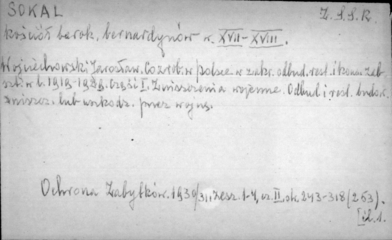 SOKAL Z.S.S.R.
kościół barok. bernardynów w. XVII-XVIII.
Wojciechowski Jarosław. Co zrob. w Polsce w zakr. odbud. rest. i konserw. zab.
szt. w l. 1919-1929. Część I. Zniszczenia wojenne. Odbud. i rest. budowl.
zniszcz. lub uszkodz. przez wojnę.
Ochrona Zabytków. 1930/31 zesz. 1-4, cz. II, str. 243-318 (263).
[il.1.